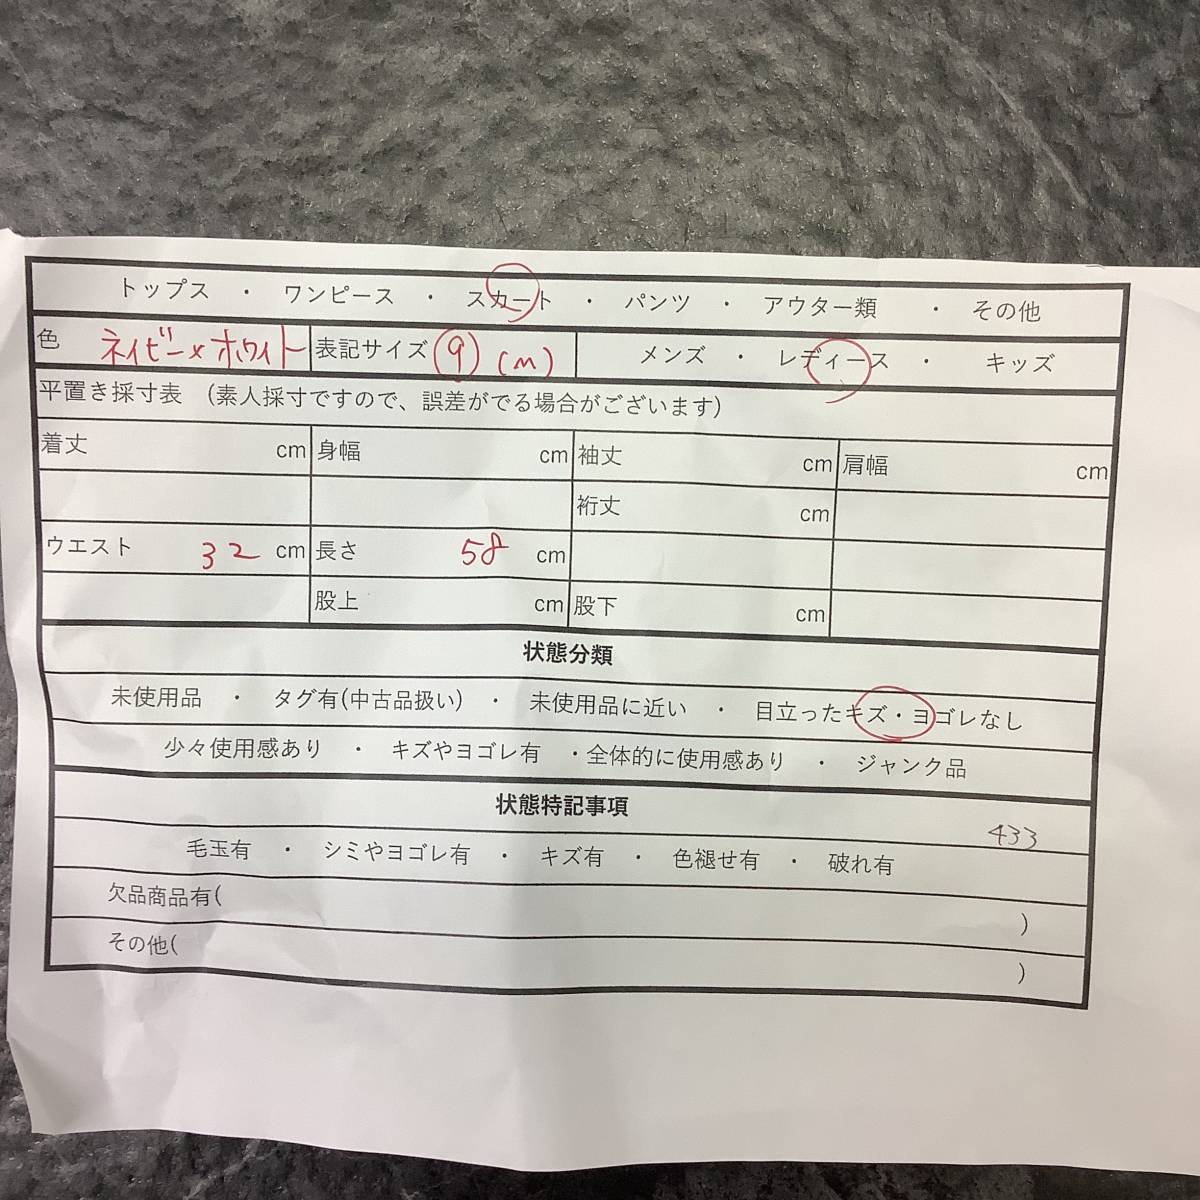 トップス ・ ワンピース ・ スカート ・ パンツ ・ アウター類 ・ その他
色 ネイビー×ホワイト 表記サイズ 9 (m) メンズ ・ レディース ・ キッズ
平置き採寸表 (素人採寸ですので、誤差がでる場合がございます)
着丈 cm 身幅 cm 袖丈 cm 肩幅 cm
裄丈 cm
ウエスト 32 cm 長さ 58 cm
股上 cm 股下 cm
状態分類
未使用品 ・ タグ有(中古品扱い) ・ 未使用品に近い ・ 目立ったキズ・ヨゴレなし
少々使用感あり ・ キズやヨゴレ有 ・全体的に使用感あり ・ ジャンク品
状態特記事項
433
毛玉有 ・ シミやヨゴレ有 ・ キズ有 ・ 色褪せ有 ・ 破れ有
欠品商品有( )
その他( )